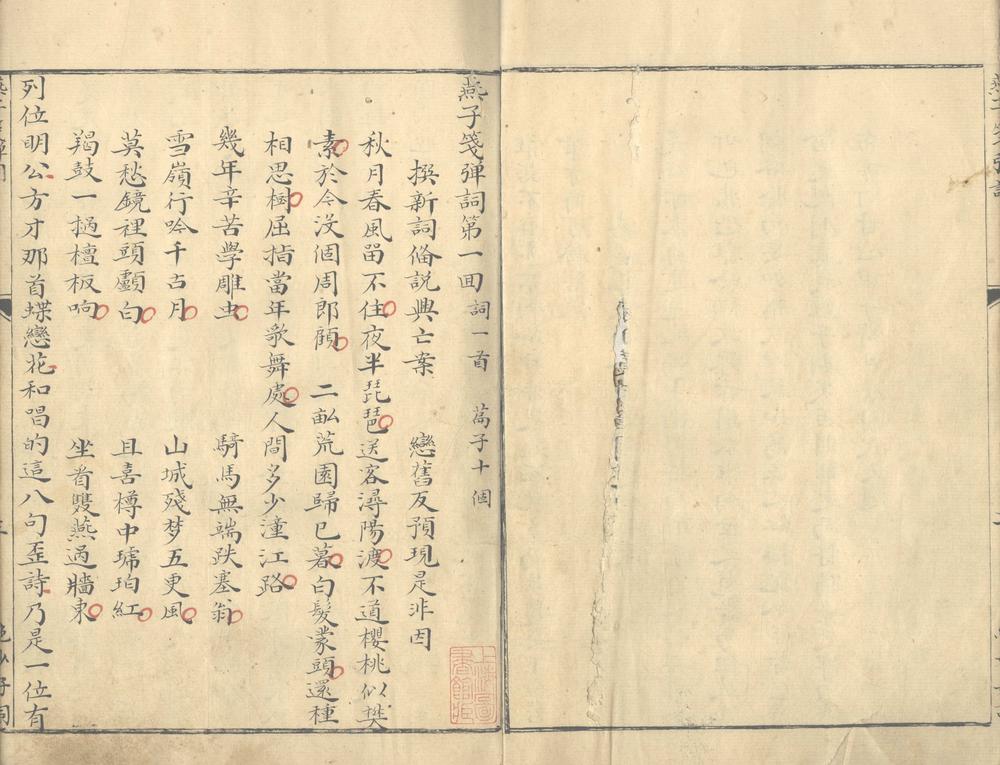 燕子箋弹詞第一囬 詞一首 葛子十個
撰新詞俻説興亡案 戀舊友預現是非因
秋月春風畄不住夜半琵琶送客潯陽渡不道櫻桃似樊
素於今没個周郎顧 二畝荒園歸已暮白髪蒙頭還種
相思樹屈指當年歌舞處人間多少潼江路
幾年辛苦學雕虫 騎馬無端跌塞翁
雪嶺行吟千古月 山城殘梦五更風
莫愁鏡裡頭顱白 且喜樽中琥珀紅
羯鼓一撾檀板响 坐看雙燕過牆東
列位明公方才那首蝶戀花和唱的這八句歪詩乃是一位有